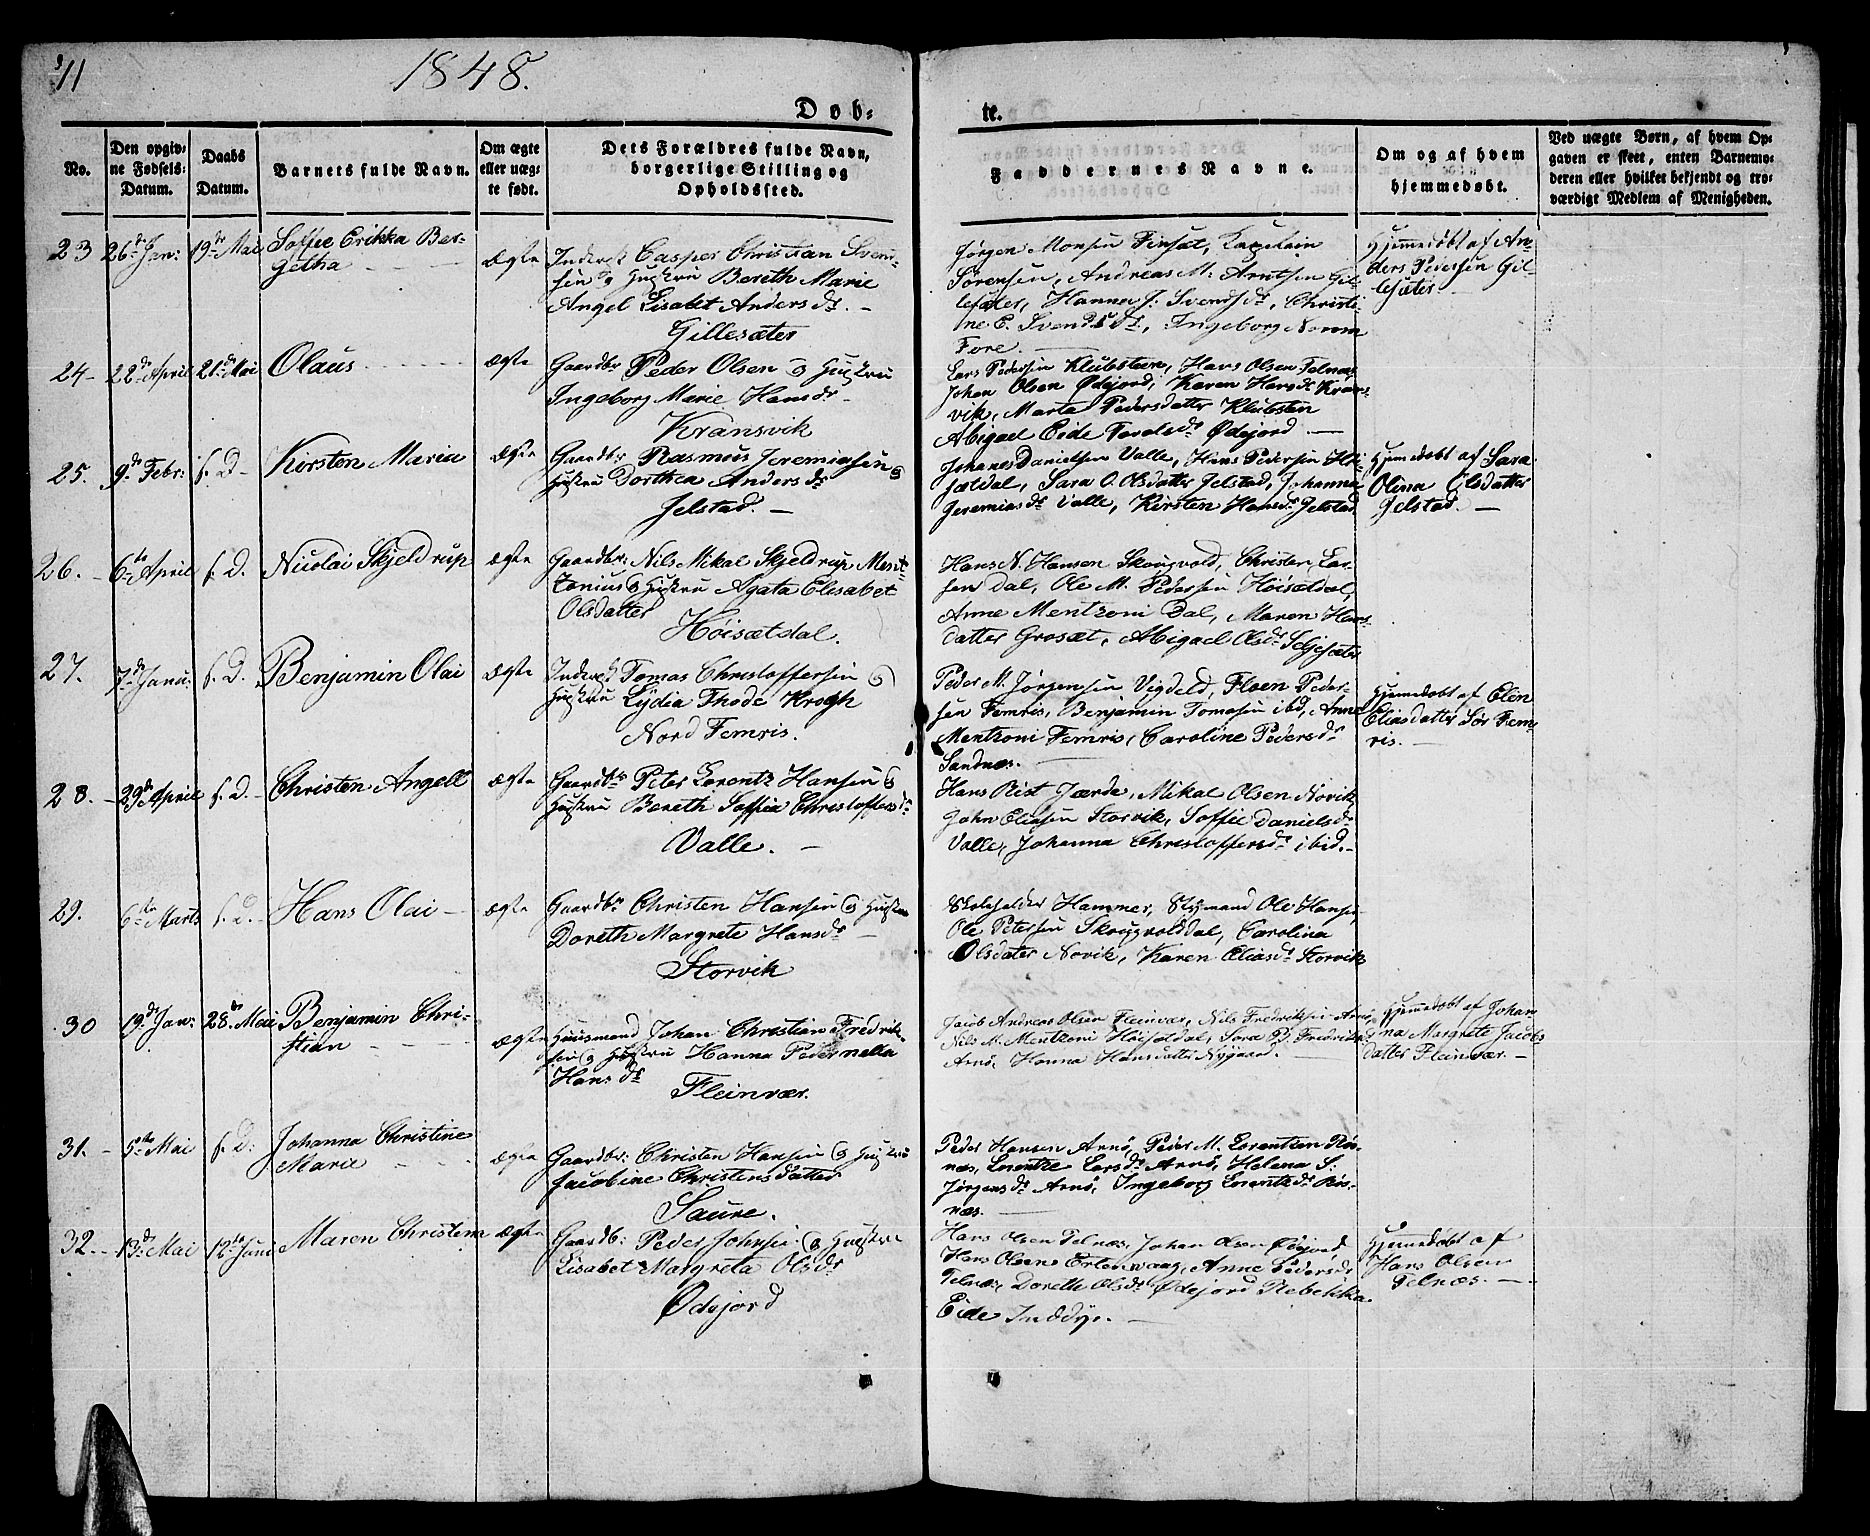 11
1848.
Døb-
te.
No.
Den opgiv-
ne Fødsels-
Datum.
Daabs
Datum.
Barnets fulde Navn.
Om ægte
eller uæg-
te født.
Dets Forældres fulde Navn,
borgerlige Stilling og
Opholdssted.
Faddernes Navne.
Om og af hvem
hjemmedøbt.
Ved uægte Børn, af hvem Op-
gaven er skeet, enten Barnemo-
deren eller hvilket bekjendt og tro-
værdigt Medlem af Menigheden.
23
26de Jan:
19de Mai
Soffie Erikka Ber-
getha
Ægte
Inderst Casper Christian Svend-
sen og Hustru Bereth Marie
Angel Lisabet Andersdr. -
Gillesæter
Jørgen Monsen Finset, Captain
Sørensen, Andreas M. Arntsen Gil-
lesæter, Hanna J: Svendsdr, Christi-
ne E. Svendsdr, Ingeborg
Fore.
Hjemmedøbt af An-
ders Pedersen Gil-
lesæter
24-
22de April
21de Mai
Olaus
ægte
Gaardbr Peder Olsen og Hustru
Ingeborg Marie Hansdr-
Kransvik
Lars Pedersen Klubsteen, Hans Olsen Telnæs
Johan Olsen Ødejord, Karen Hansdr Krans-
vik, Marta Pedersdatter Klubsten
Abigael Eide Ødejord
25.
9de Febr:
s. D-
Kirsten Maria
Ægte
Gaardbr Rasmus Jeremiasen og
Hustru Dorthea Andersdr
Jelstad. -
Johanes Danielsen Valle, Hans Pedersen Høi-
sætdal, Sara O. Olsdatter Jelstad, Johanna
Jeremiasdr Valle, Kirsten Hansdr Jelstad
Hjemmedøbt af Sara
Olina Olsdatter
Jelstad. -
26.
6te April
s. D.
Nicolai Skjeldrup
ægte
Gaardbr: Nils Mikal Skjeldrup
og Hustru Agata Elisabet
Olsdatter
Høisætdal.
Hans N. Hansen Skougvold, Christen Lar-
sen Dal, Ole M. Pedersen Høisætdal,
Anne Mentzoni Dal, Maren Hans-
datter Grosæt, Abigael Olsdr
27.
7de Janu:
s. D.
Benjamin Olai
ægte
Inderst Tomas Christoffersen og
Hustru Lydia Thode Krogh
Nord Femris.
Peder M. Jørgensen Femris, Benjamin Tomesen ibd, Anne
Mentzoni Femris, Caroline Pedersdr
Sandnæs.
Hjemmedøbt af Elen
Eliasdatter Sør Fem-
ris.
28.
29de April
s. D.
Christen Angell
ægte
Gaardbr Peter Lorentz Hansen og
Hustru Bereth Soffia Christoffersdr
Valle. -
Hans Rist Jærde, Mikal Olsen Novik
John Eliasen Storvik, Soffie Danielsdr
Valle, Johanna Christoffersdr ibid.
29.
6te Marts
s. D.
Hans Olai
ægte
Gaardbr Christen Hansen og Hustru
Doreth Margrete Hansdr
Storvik
Skoleholder Hammer, Styrmand Ole Hansen
Ole Petersen Skougvolddal, Carolina
Olsdater Novik, Karen Eliasdr Storvik
30
19de Jan:
28de Mai
Benjamin Chri-
stian
ægte
Huusmand Johan Christian Fredrik-
sen og Hustru Hanna Pedernella
Hansdr
Fleinvær.
Jacob Andreas Olsen Fleinvær, Nils Fredriksen Arnø,
Nils M. Mentzoni Høisætdal, Sara
Arnø, Hanna Hansdatter Nygaard.
Hjemmedøbt af Johan-
na Margrete Jacobs-
datter Fleinvær. -
31.
5te Mai
s. D.
Johanna Christine
Marie
ægte
Gaardbr: Christen Hansen og Hustru
Jacobine Christensdatter
Saure.
Peder Hansen Arnø, Peder M. Lorentzen Røs-
næs, Lorentze Larsdr Arnø, Helena S:
Jørgensdr Arnø, Ingeborg Lorentzdr Røs-
næs.
32.
13de Mai
12te Juni
Maren Christina
ægte
Gaardb: Peder Johnsen og Hustru
Lisabet Margreta Olsdr
Ødejord
Hans Olsen Telnæs, Johan Olsen Ødejord
Hans Olsen Ertenvaag, Anne Pedersdr
Telnæs, Doreth Olsdr Ødejord Rebekka
Eide Inddyr.
Hjemmedøbt af
Hans Olsen
Telnæs. -